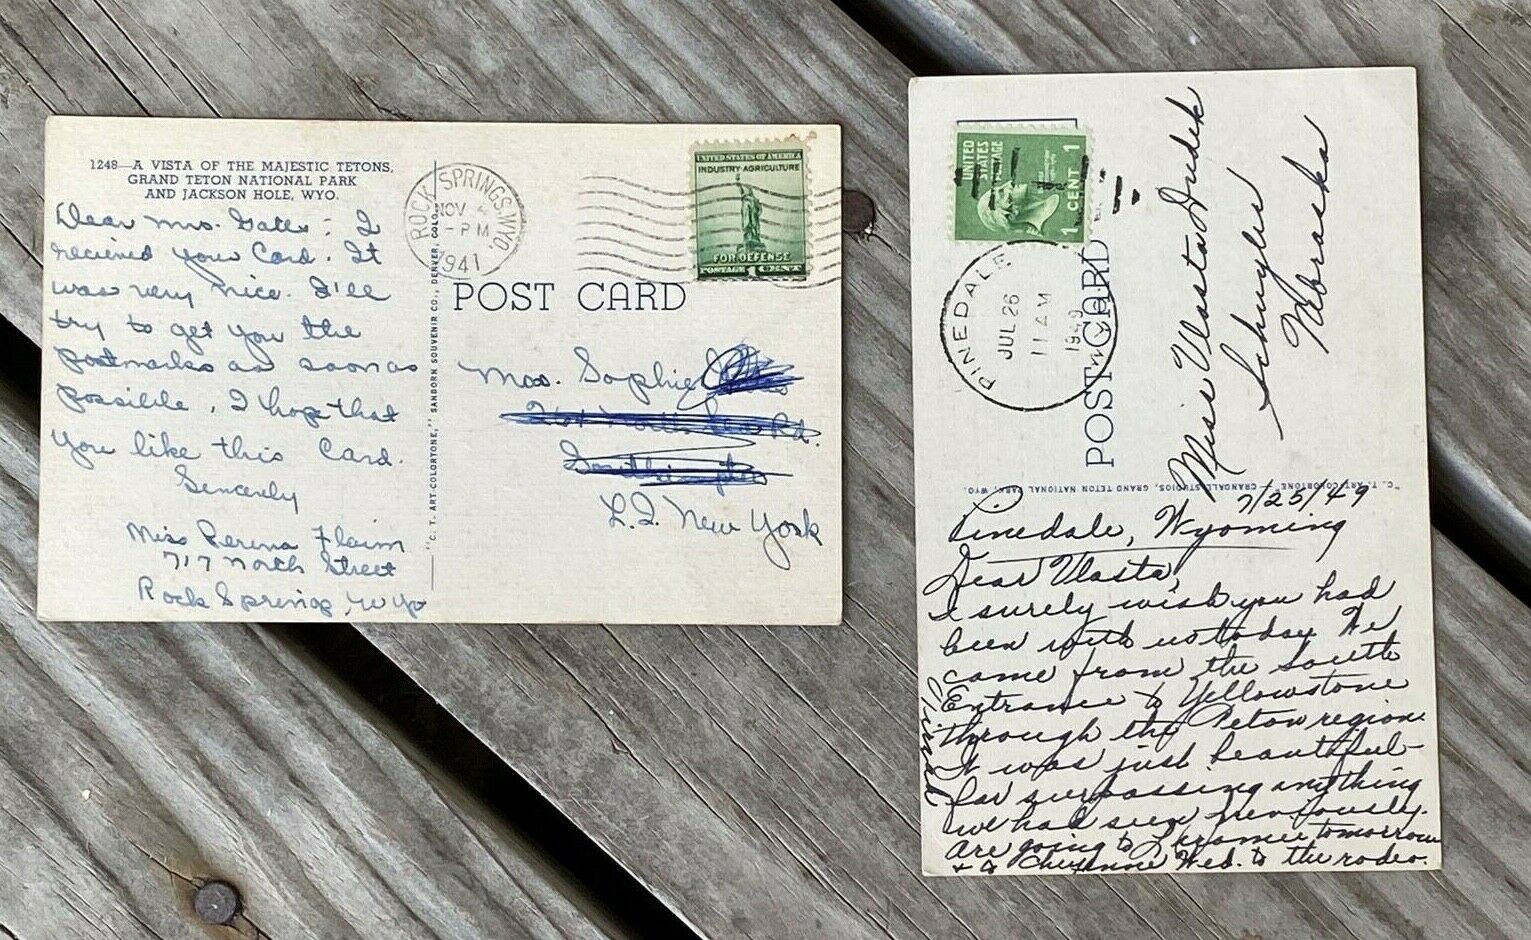 1248—A VISTA OF THE MAJESTIC TETONS,
GRAND TETON NATIONAL PARK
AND JACKSON HOLE, WYO.
Dear Mrs. Gatts: I
recieved your Card. It
was very nice. I'll
try to get you the
postmarks as soon as
possible. I hope that
you like this Card.
Sincerely
Miss Perena Flaim
717 North Street
Rock Springs, Wyo
"C. T. ART-COLORTONE," SANBORN SOUVENIR CO., DENVER, COLO.
ROCK SPRINGS, WYO.
NOV 4
-PM
1941
UNITED STATES OF AMERICA
INDUSTRY-AGRICULTURE
FOR DEFENSE
POSTAGE 1 CENT
POST CARD
Mrs. Sophie
Rd.
Southampton
L.I. New York
UNITED
STATES
POSTAGE
1 CENT 1
PINEDALE
JUL 26
11 AM
1949
WYO.
POST CARD
Miss Vlasta Dudek
Schuyler
Nebraska
"C. T. ART-COLORTONE" CRANDALL STUDIOS, GRAND TETON NATIONAL PARK, WYO.
7/25/49
Pinedale, Wyoming
Dear Vlasta,
I surely wish you had
been with us today. We
came from the South
Entrance to Yellowstone
through the Teton region.
It was just beautiful-
far surpassing anything
we had seen previously.
Are going to Laramie tomorrow
+ to Cheyenne Wed. to the rodeo.